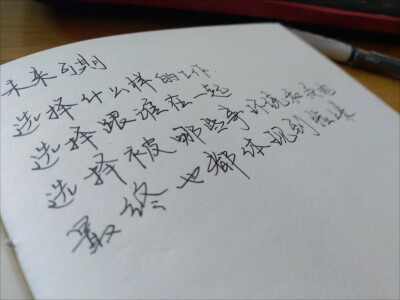 未来可期
选择什么样的工作
选择跟谁在一起
选择被哪些事环境和
最终也都体现到